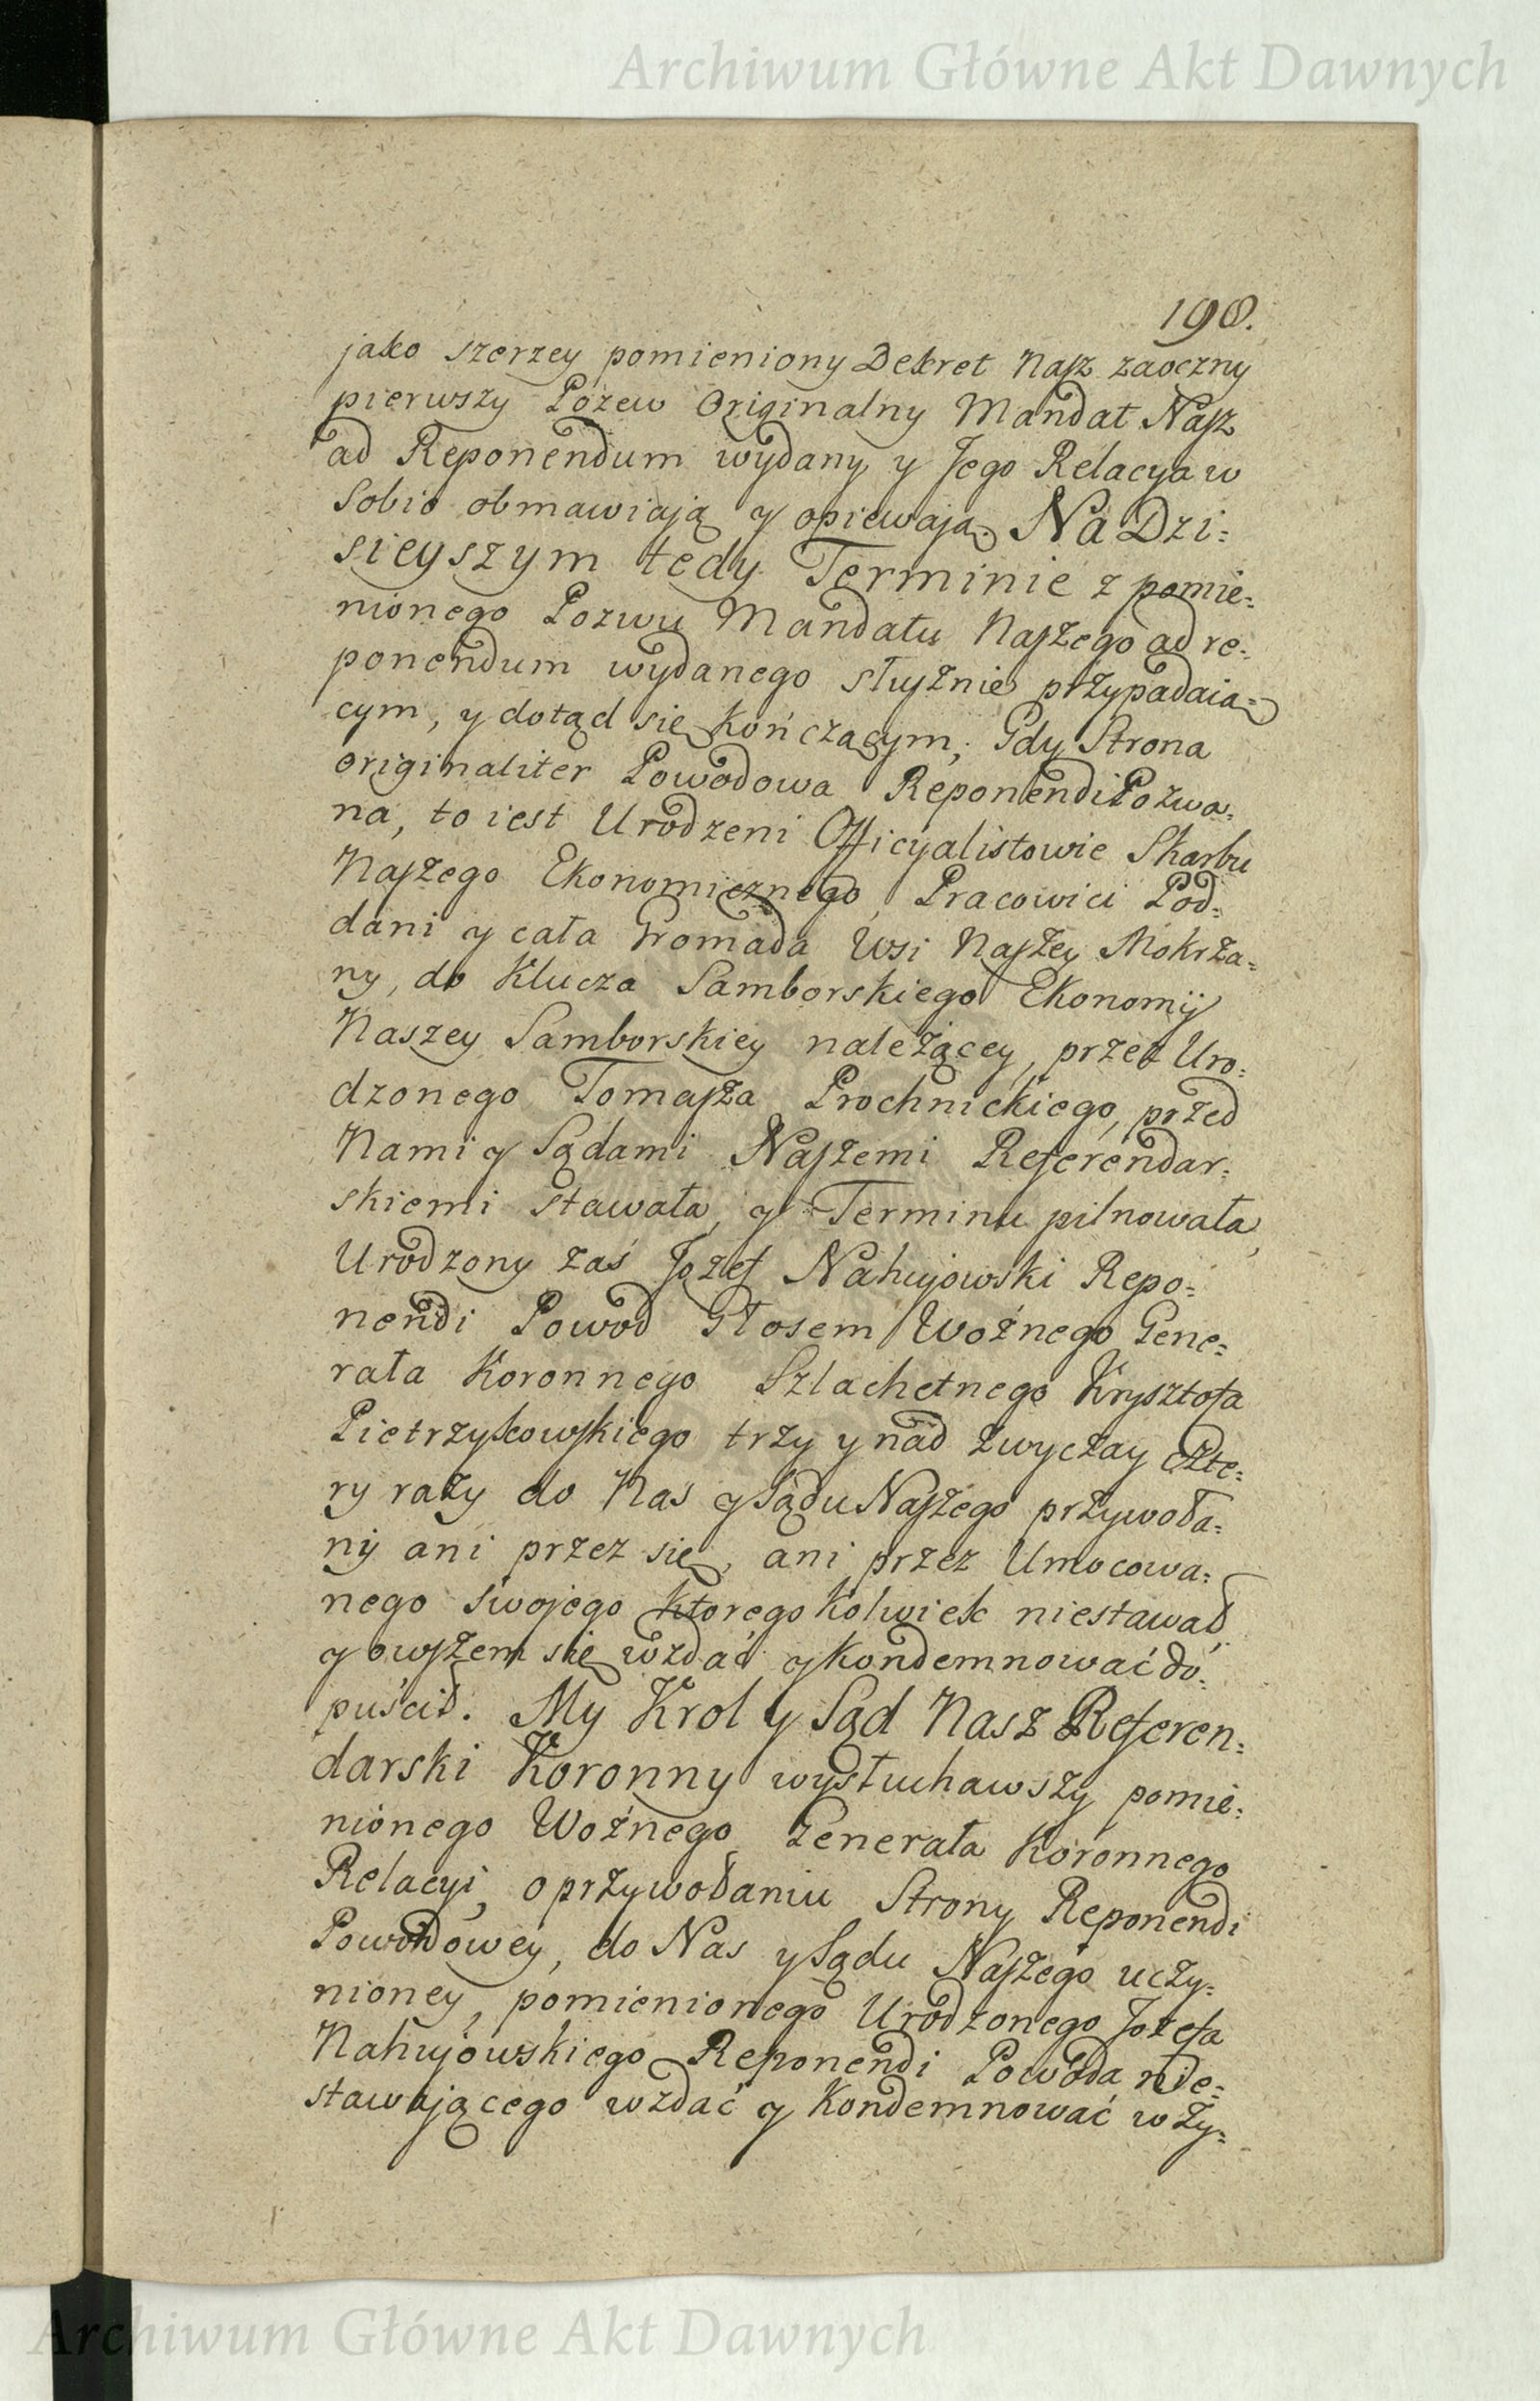 Archiwum Główne Akt Dawnych
198.
jako szerzey pomieniony Dekret Nasz zaoczny
pierwszy Pozew Originalny Mandat Nasz
ad Reponendum wydany y Jego Relacya w
Sobie obmawiają y opiewają. Na Dzi=
sieyszym tedy Terminie z pomie=
nionego Pozwu Mandatu Naszego ad re=
ponendum wydanego słusznie przypadaią=
cym, y dotąd się kończącym, Gdy Strona
originaliter Powodowa Reponendi Pozwa=
na, to iest Urodzeni Officyalistowie Skarbu
Naszego Ekonomicznego, Pracowici Pod=
dani y cała Gromada Wsi Naszey Mokrza=
ny, do Klucza Samborskiego Ekonomij
Naszey Samborskiey należącey, przez Uro=
dzonego Tomasza Prochnickiego, przed
Nami y Sądami Naszemi Referendar=
skiemi stawała, y Terminu pilnowała,
Urodzony zaś Jozef Nahujowski Repo=
nendi Powod Głosem Woźnego Gene=
rała Koronnego Szlachetnego Krysztofa
Pietrzykowskiego trzy y nad zwyczay czte=
ry razy do Nas y Sądu Naszego przywoła=
ny ani przez się, ani przez Umocowa=
nego swojego ktorego kolwiek niestawał
y owszem się wzdać y kondemnować do=
puścił. My Krol y Sąd Nasz Referen=
darski Koronny wysłuchawszy pomie=
nionego Woźnego Generała Koronnego
Relacyi, o przywołaniu Strony Reponendi
Powodowey, do Nas y Sądu Naszego uczy=
nioney, pomienionego Urodzonego Jozefa
Nahujowskiego Reponendi Powoda nie=
stawającego wzdać y Kondemnować w Zy=
Archiwum Główne Akt Dawnych